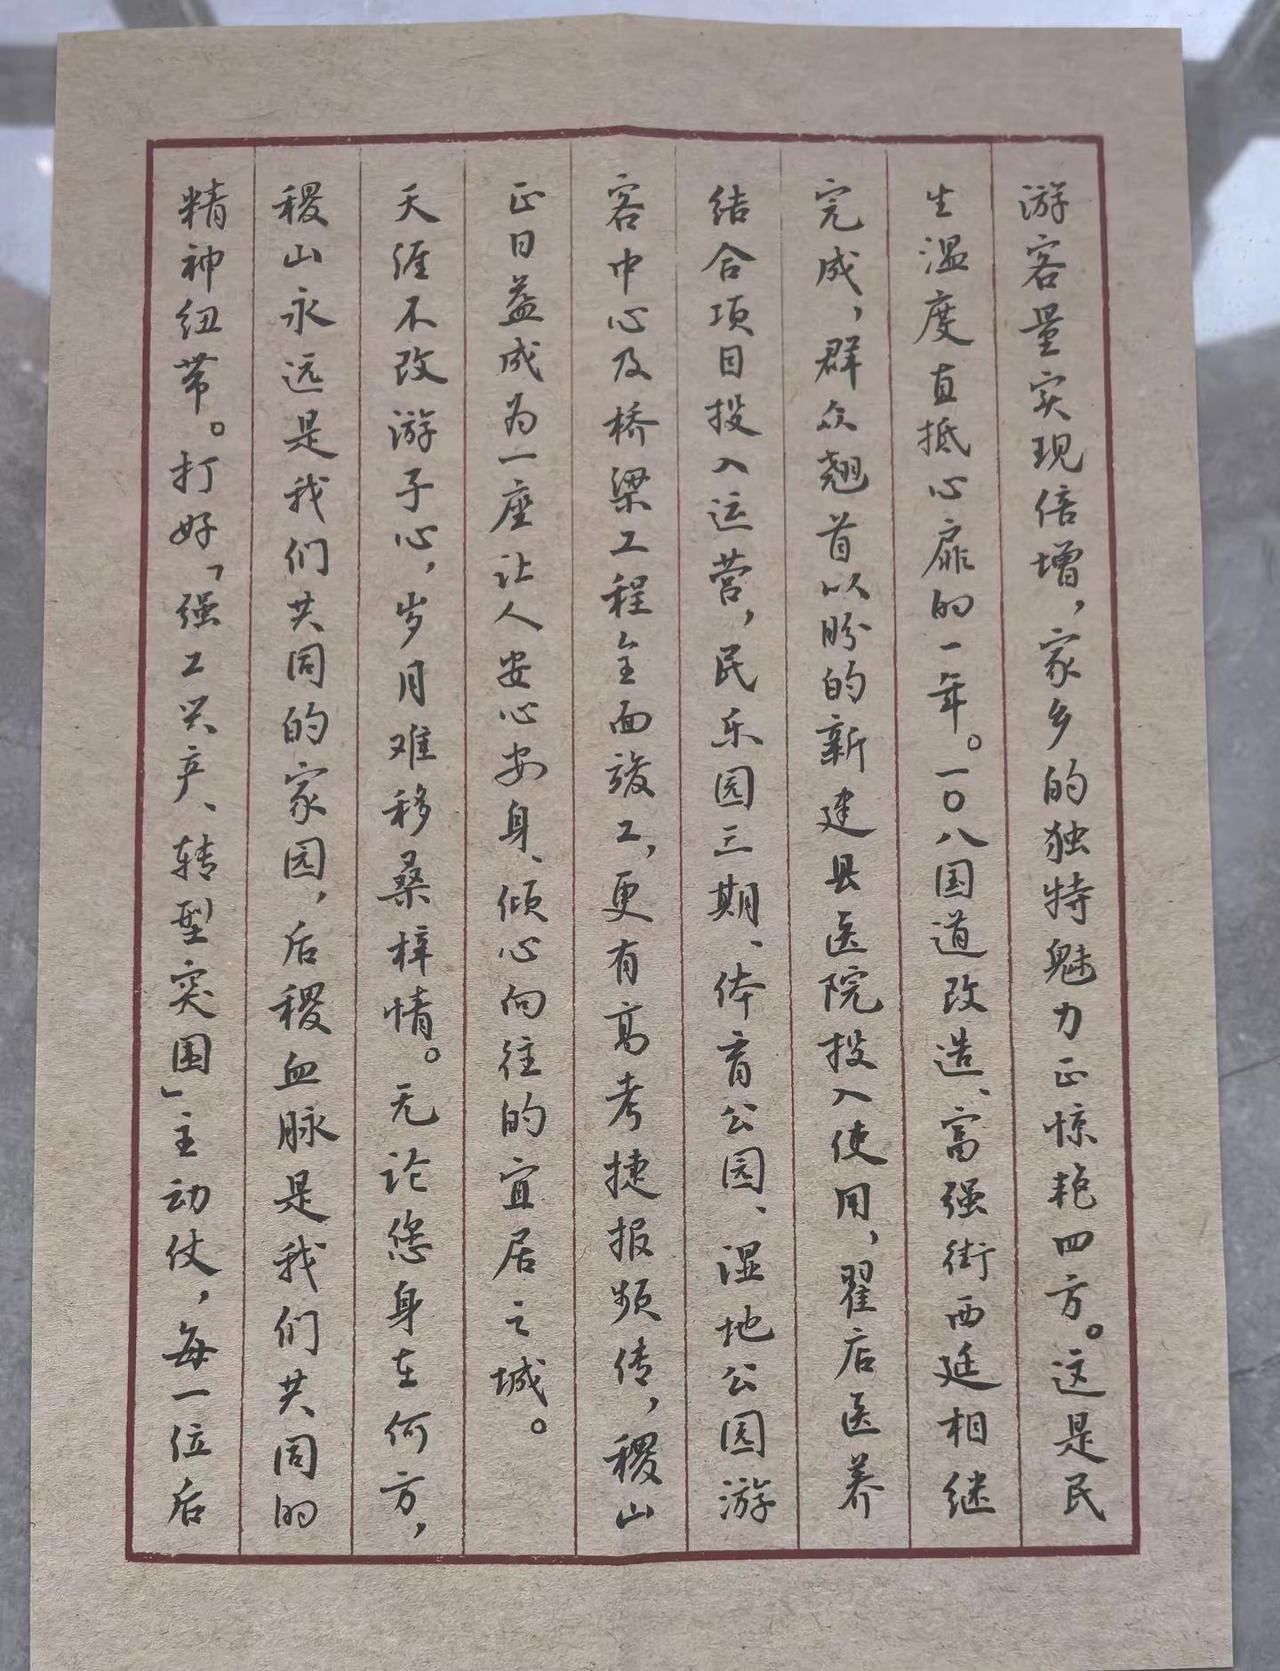 游客量实现倍增，家乡的独特魅力正惊艳四方。这是民
生温度直抵心扉的一年。一〇八国道改造、富强街西延相继
完成，群众翘首以盼的新建县医院投入使用，翟店医养
结合项目投入运营，民乐园三期、体育公园、湿地公园游
客中心及桥梁工程全面竣工，更有高考捷报频传，稷山
正日益成为一座让人安心安身、倾心向往的宜居之城。
天涯不改游子心，岁月难移桑梓情。无论您身在何方，
稷山永远是我们共同的家园，后稷血脉是我们共同的
精神纽带。打好「强工兴产、转型突围」主动仗，每一位后